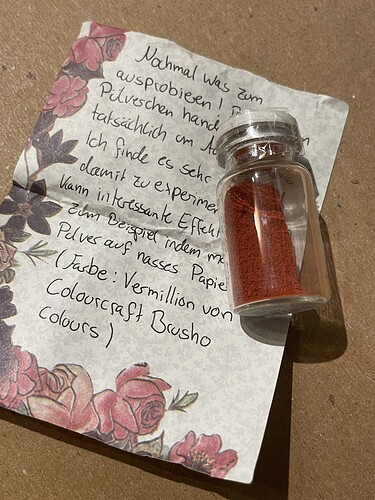 Nochmal was zum
ausprobieren!
Pülverchen
tatsächlich um
Ich finde es sehr
damit zu
kann interessante
zum Beispiel indem
Pulver auf nasses
(Farbe: Vermillion von
Colourcraft Brusho
colours)